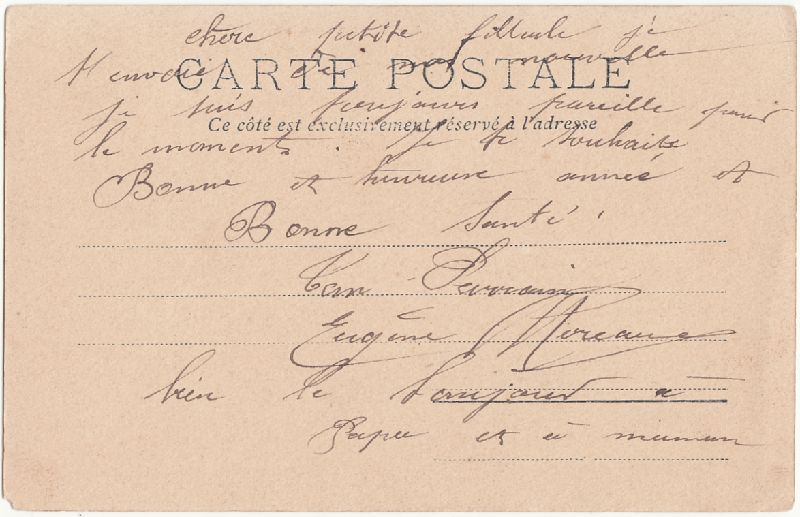 chère petite filleule je
t'envoie de mes nouvelle
CARTE POSTALE
je suis toujours pareille pour
Ce côté est exclusivement réservé à l'adresse
le moment. Je te souhaite
Bonne et heureuse année et
Bonne Santé!
Ton Parrain
Eugène Moreau
bien le bonjour à
Papa et à maman